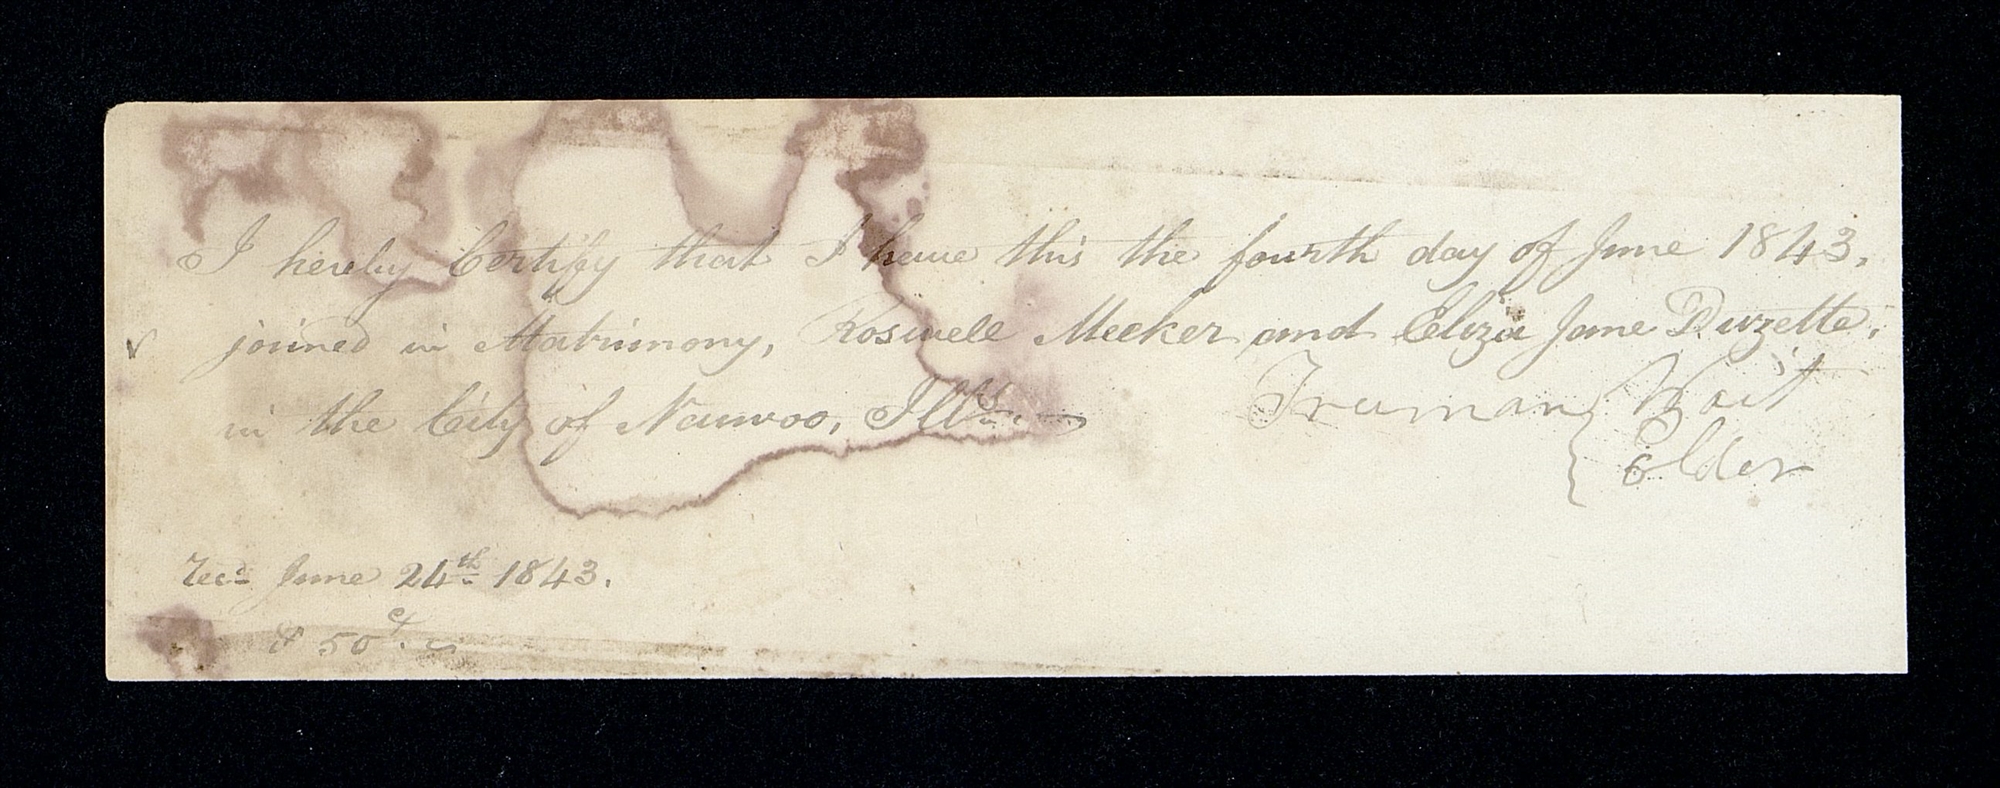 I hereby Certify that I have this the fourth day of June 1843,
joined in Matrimony, Roswell Meeker and Eliza Jane Duzette,
in the City of Nauvoo, Ills.
Truman Wait
Elder
Recd June 24th 1843.
& 50 ct.